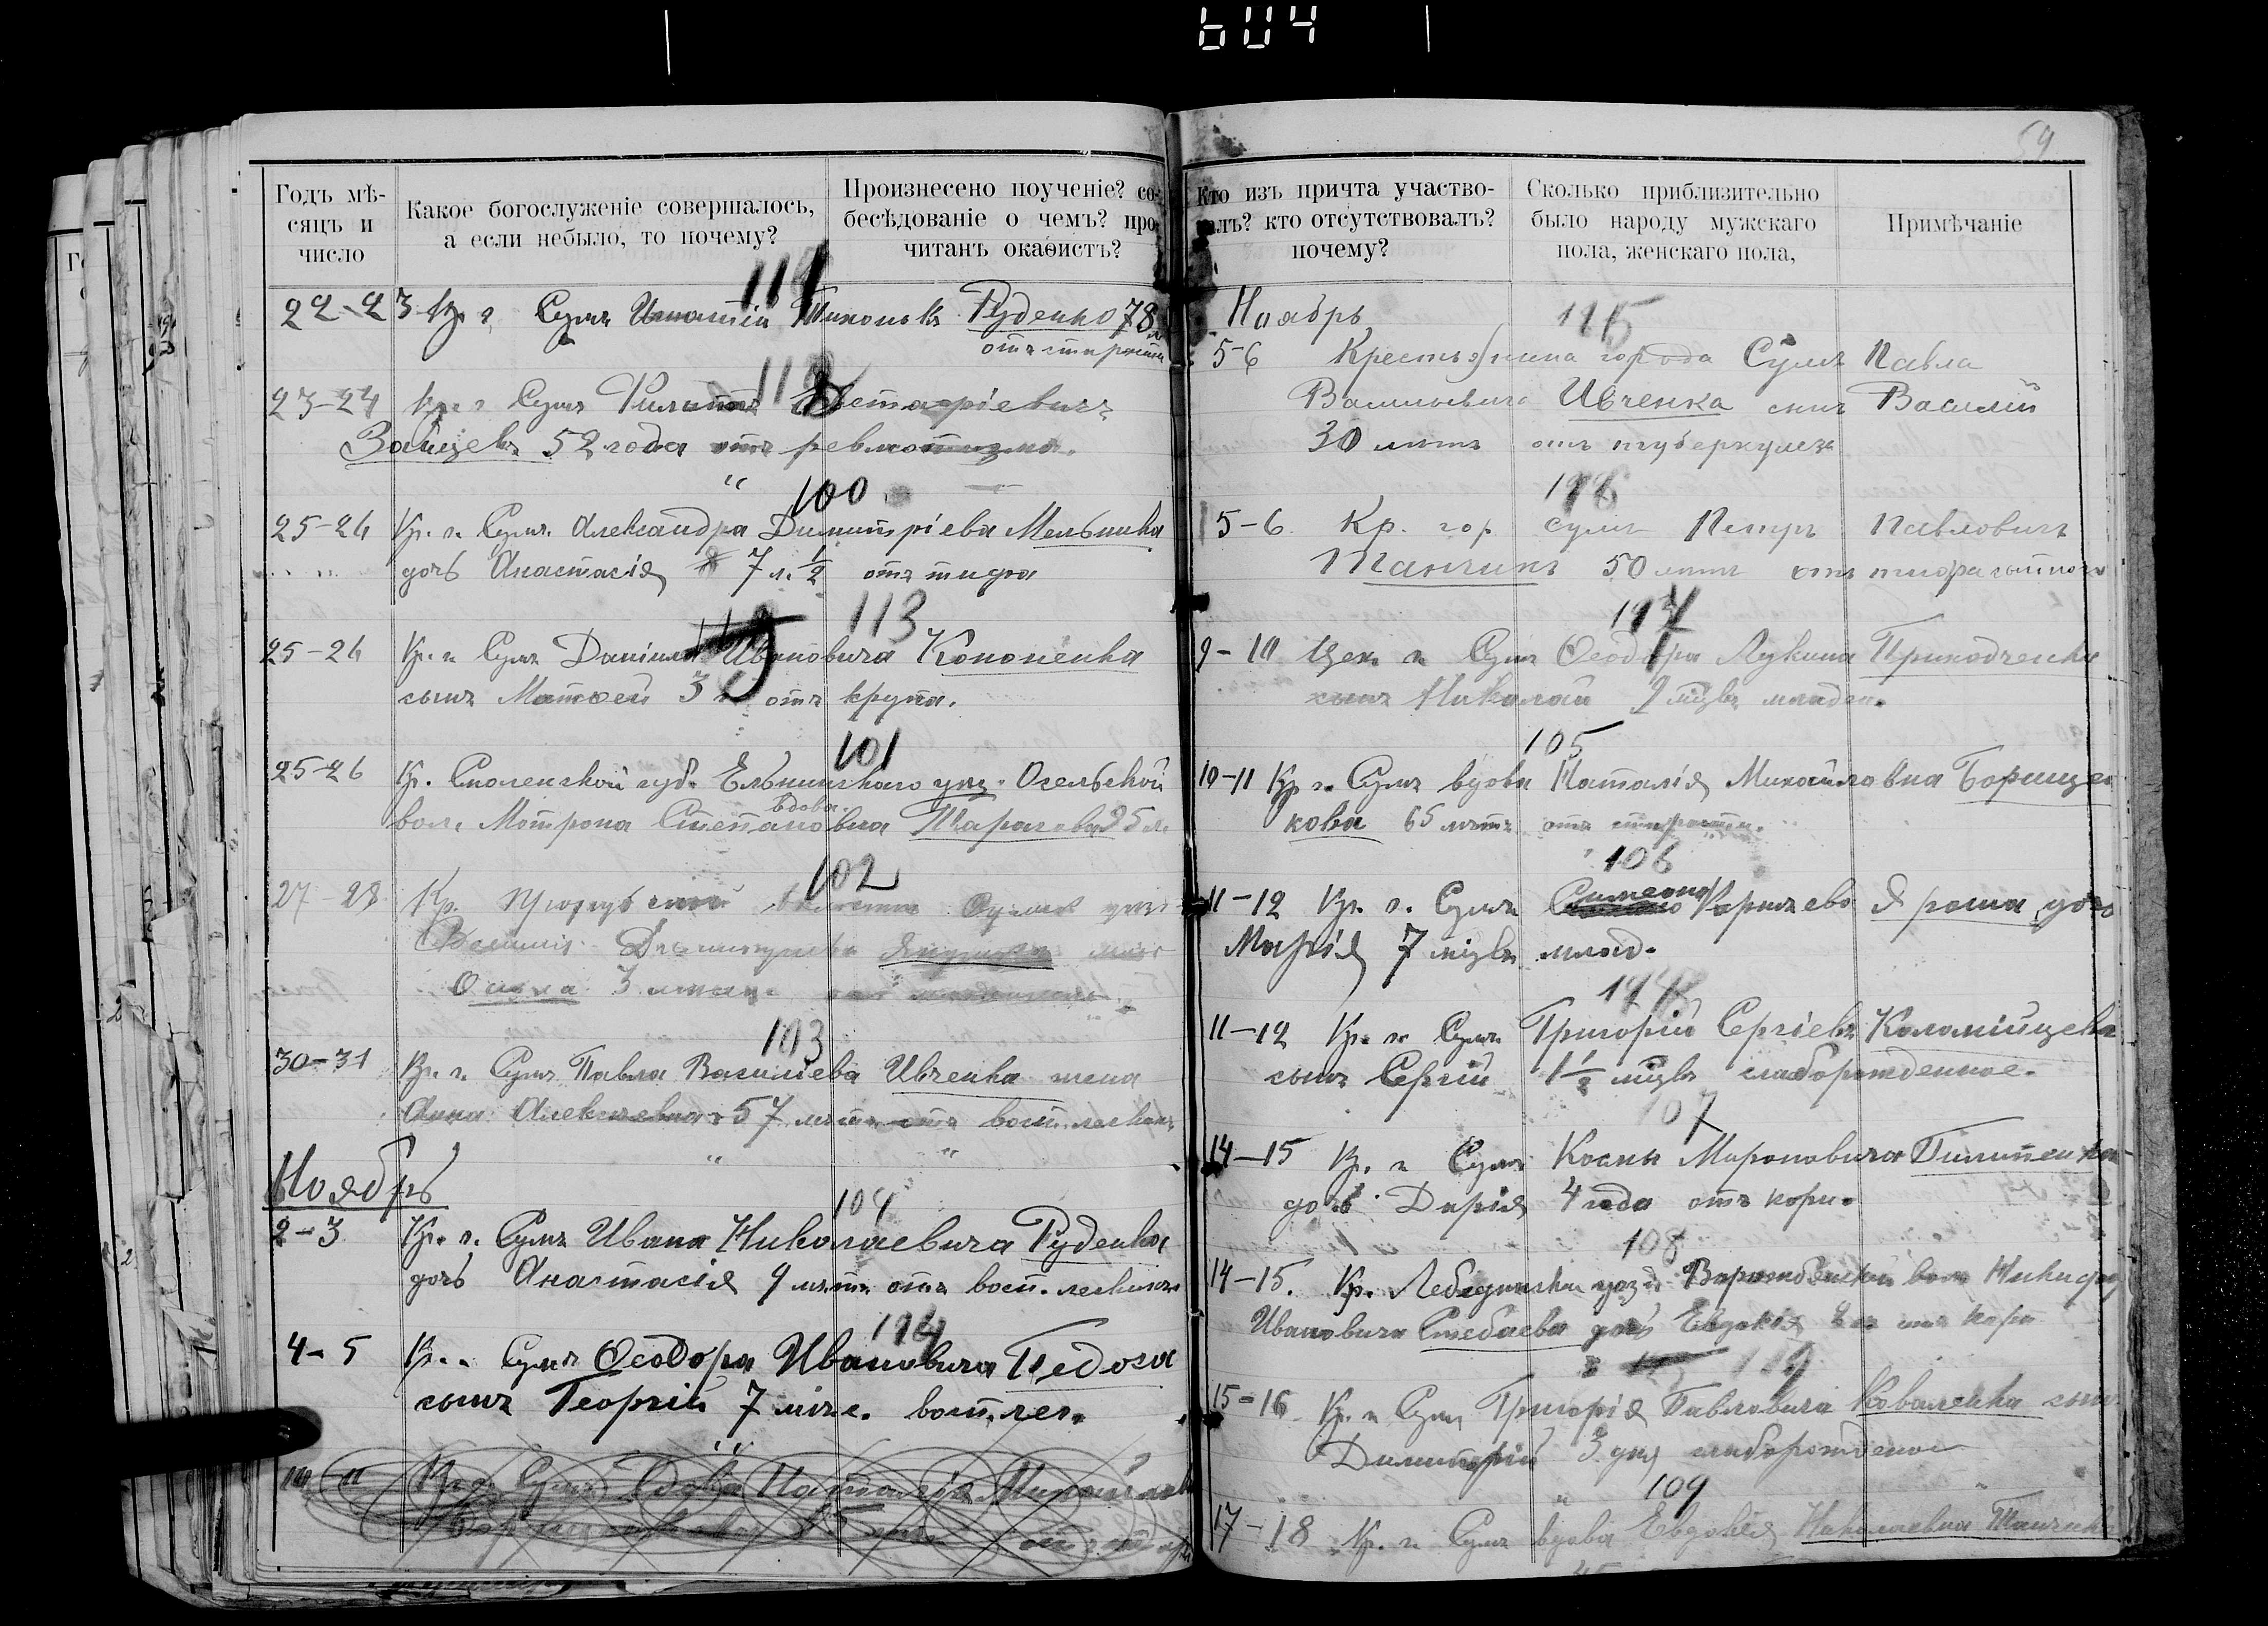 604
Годъ мѣ-
сяцъ и
число
Какое богослуженіе совершалось,
а если небыло, то почему?
Произнесено поученіе? со-
бесѣдованіе о чемъ? про-
читанъ окаѳистъ?
22-23 Кр. г. Сумъ Игнатій Руденко 78
отъ старости
23-24 Кр. г. Сумъ Филиппъ Евстафіевичъ
Зайцевъ 52 года отъ ревматизма.
100
25-26 Кр. г. Сумъ Александра Димитріева Мельника
дочь Анастасія 7 л. ½ отъ тифа
113
25-26 Кр. г. Сумъ Даніила Ивановича Кононенка
сынъ Матѳей 3 отъ крупа.
101
25-26 Кр. Смоленской губ. Ельнинскаго уѣз.
вдова
вол. Мотрона Степановна
102
27-28 Кр.
3
103
30-31 Кр. г. Сумъ Павла Василіева Ивченка жена
Анна Алексѣевна 57 лѣтъ отъ восп. легкихъ
Ноябрь
104
2-3 Кр. г. Сумъ Ивана Николаевича Руденка
дочь Анастасія 9 лѣтъ отъ восп. легкихъ
114
4-5 Кр. г. Сумъ Ѳеодора Ивановича
сынъ Георгій 7 мѣс. восп. лег.
Кр. г. Сумъ вдова Наталія
59
Кто изъ причта участво-
валъ? кто отсутствовалъ?
почему?
Сколько приблизительно
было народу мужскаго
пола, женскаго пола,
Примѣчаніе
Ноябрь
115
5-6 Крестьянина города Сумъ Павла
Васильевича Ивченка сынъ Василій
30 лѣтъ отъ туберкулеза
116
5-6 Кр. гор. Сумъ Петръ Павловичъ
Танчикъ 50 лѣтъ отъ
117
9-10 Цех. г. Сумъ Ѳеодора Лукина Приходченка
сынъ Николай 2 мѣц. младен.
105
10-11 Кр. г. Сумъ вдова Наталія Михайловна Борищен
кова 65 лѣтъ отъ старости.
106
11-12 Кр. г. Сумъ Симеона Яроша дочь
Марія 7 мѣц. млад.
118
11-12 Кр. г. Сумъ Григорій Сергіевъ Коломійцева
сынъ Сергій 1½ мѣц. слаборожденное.
107
14-15 Кр. г. Сумъ Космы Мироновича Пилипенка
дочь Дарія 4 года отъ кори.
108
14-15. Кр. Лебединскаго уѣзд. вол.
Ивановича дочь Евдокія отъ кори
119
15-16 Кр. г. Сумъ Григорія Павловича Коваленка сынъ
Димитрій 3 дня слаборожденное
109
17-18 Кр. г. Сумъ вдова Евдокія Николаевна Танчикъ